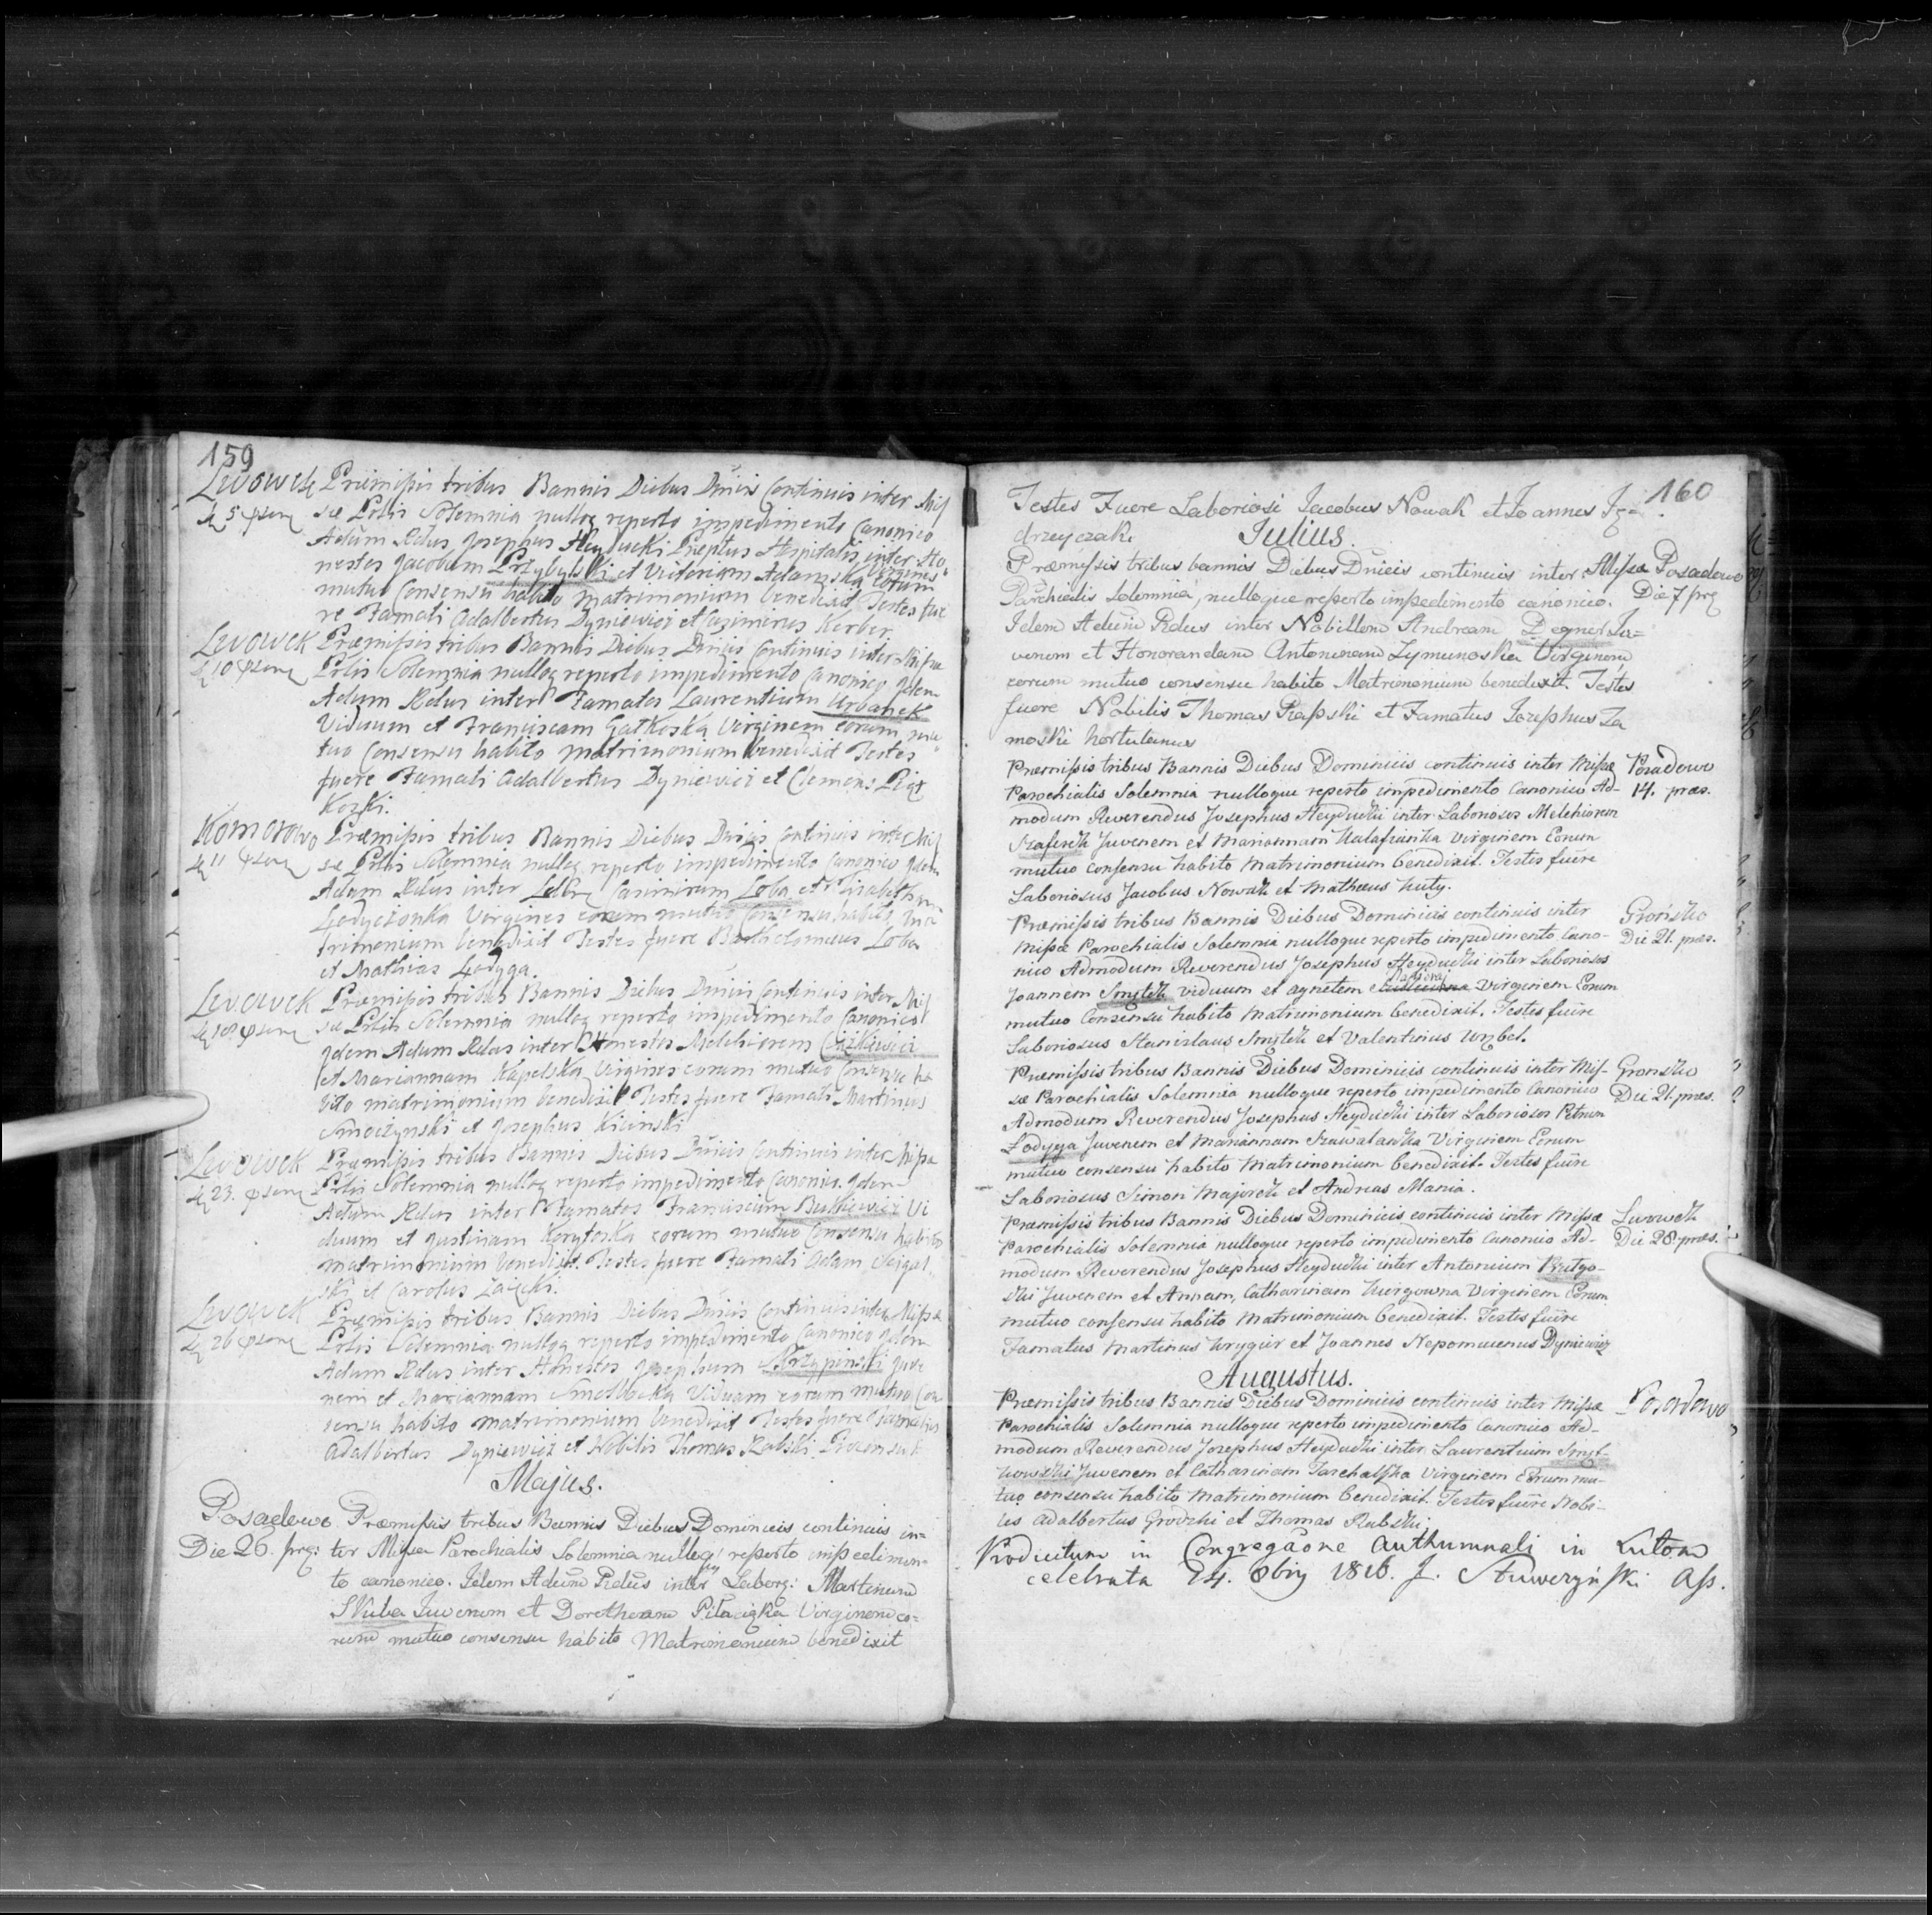 159
Lwowek Præmissis tribus Bannis Diebus Dnicis Continuis inter Mis
5 sæ Pchlis Solemnia nulloq reperto impedimento Canonico
Adum Rdus Josephus Heyducki Præptus Hospitalis inter Ho
nestos Jacobum Przybylski et Victoriam Adamska Virgines Eorum
mutuo Consensu habito Matrimonium benedixit Testes fue
re Famati Adalbertus Dyniewicz et Casimirus Kerber
Lwowek Præmissis tribus Bannis Diebus Dnicis Continuis inter Missæ
10 Pchlis Solemnia nulloq reperto impedimento Canonico Idem
Adum Rdus inter Famatos Laurentium Urbanek
Viduum et Franciscam Gatkoska Virginem eorum mu
tuo Consensu habito matrimonium benedixit Testes
fuere Famati Adalbertus Dyniewicz et Clemens
Komorowo Præmissis tribus Bannis Diebus Dnicis Continuis inter Mis
11 sæ Pchlis Solemnia nulloq reperto impedimento Canonico Idem
Adum Rdus inter Casimirum Loba et Elisabetham
Lodyczonka Virgines eorum mutuo Consensu habito ma
trimonium benedixit Testes fuere Bartholomeus Loba
et Mathias Lodyga.
Lwowek Præmissis tribus Bannis Diebus Dnicis Continuis inter Mis
sæ Pchlis Solemnia nulloq reperto impedimento Canonico
Idem Adum Rdus inter Honestos Melchiorem
et Mariannam Kapelska Virgines eorum mutuo Consensu ha
bito matrimonium benedixit Testes fuere Famati Martinus
Smoczynski et Josephus Kicinski
Lwowek Præmissis tribus Bannis Diebus Dnicis Continuis inter Missæ
23. Pchlis Solemnia nulloq reperto impedimento Canonico. Idem
Adum Rdus inter Famatos Franciscum Butkiewicz Vi
duum et Justinam Korytoska eorum mutuo Consensu habito
matrimonium benedixit. Testes fuere Famati Adam
ski et Carolus Zaicki.
Lwowek Præmissis tribus Bannis Diebus Dnicis Continuis inter Missæ
26 Pchlis Solemnia nulloq reperto impedimento Canonico Idem
Adum Rdus inter Honestos Josephum Skrzypinski Juve
nem et Mariannam Viduam eorum mutuo Con
sensu habito matrimonium benedixit Testes fuere Famatus
Adalbertus Dyniewicz et Nobilis Thomas Rabski
Majus.
Posadowo Præmissis tribus Bannis Diebus Dominicis continuis in=
Die 26. ter Missæ Parochialis Solemnia nulloq reperto impedimen=
to canonico. Idem Adum Rdus inter Laborg: Martinum
Skuba Juvenem et Dorotheam Virginem eo=
rum mutuo consensu habito Matrimonium benedixit
160
Testes Fuere Laboriosi Jacobus Nowak et Joannes Ję=
drzeyczak
Julius.
Præmissis tribus bannis Diebus Dnicis continuis inter Missæ Posadowo
Parchialis Solemnia, nulloque reperto impedimento canonico. Die 7
Idem Adum Rdus inter Nobilem Andream Degner Ju=
venem et Honorandam Antoninam Szymunoska Virginem
eorum mutuo consensu habito Matrimonium benedixit. Testes
fuere Nobilis Thomas Rapski et Famatus Josephus Za
moski hortulanus
Præmissis tribus Bannis Diebus Dominicis continuis inter Missæ Posadowo
Parochialis Solemnia nulloque reperto impedimento Canonico Ad- 14. præs.
modum Reverendus Josephus Heyducki inter Laboriosos Melchiorem
Szafirek Juvenem et Mariannam Kalafianka Virginem Eorum
mutuo consensu habito Matrimonium benedixit. Testes fuêre
Laboriosus Jacobus Nowak et Mathæus Huty.
Præmissis tribus Bannis Diebus Dominicis continuis inter Grońsko
Missæ Parochialis Solemnia nulloque reperto impedimento Cano- Die 21. præs.
nico Admodum Reverendus Josephus Heyducki inter Laboriosos
Joannem Smytek viduum et Agnetem Virginem Eorum
mutuo Consensu habito Matrimonium benedixit. Testes fuêre
Laboriosus Stanislaus Smytek et Valentinus Wrzbel.
Præmissis tribus Bannis Diebus Dominicis continuis inter Mis- Gronsko
sæ Parochialis Solemnia nulloque reperto impedimento Canonico Die 21. præs.
Admodum Reverendus Josephus Heyducki inter Laboriosos Petrum
Łodyga Juvenem et Mariannam Szuwalawka Virginem Eorum
mutuo consensu habito Matrimonium benedixit. Testes fuêre
Laboriosus Simon Majorek et Andreas Mania.
Præmissis tribus Bannis Diebus Dominicis continuis inter Missæ Lwowek
Parochialis Solemnia nulloque reperto impedimento Canonico Ad- Die 28. præs.
modum Reverendus Josephus Heyducki inter Antonium Rutgo-
ski Juvenem et Annam, Catharinam Virginem Eorum
mutuo consensu habito Matrimonium benedixit. Testes fuêre
Famatus Martinus Krygier et Joannes Nepomucenus Dyniewicz
Augustus.
Præmissis tribus Bannis Diebus Dominicis continuis inter Missæ Posadowo
Parochialis Solemnia nulloque reperto impedimento Canonico Ad-
modum Reverendus Josephus Heyducki inter Laurentium Smyt-
kowski Juvenem et Catharinam Jarchalska Virginem Eorum mu-
tuo consensu habito Matrimonium benedixit. Testes fuêre Nobi-
les Adalbertus Grodzki et Thomas Rabski.
Productum in Congregaõne Authumnali in Lutom
celebrata 24. 8bris 1816. J. Stuwczyński Ass.